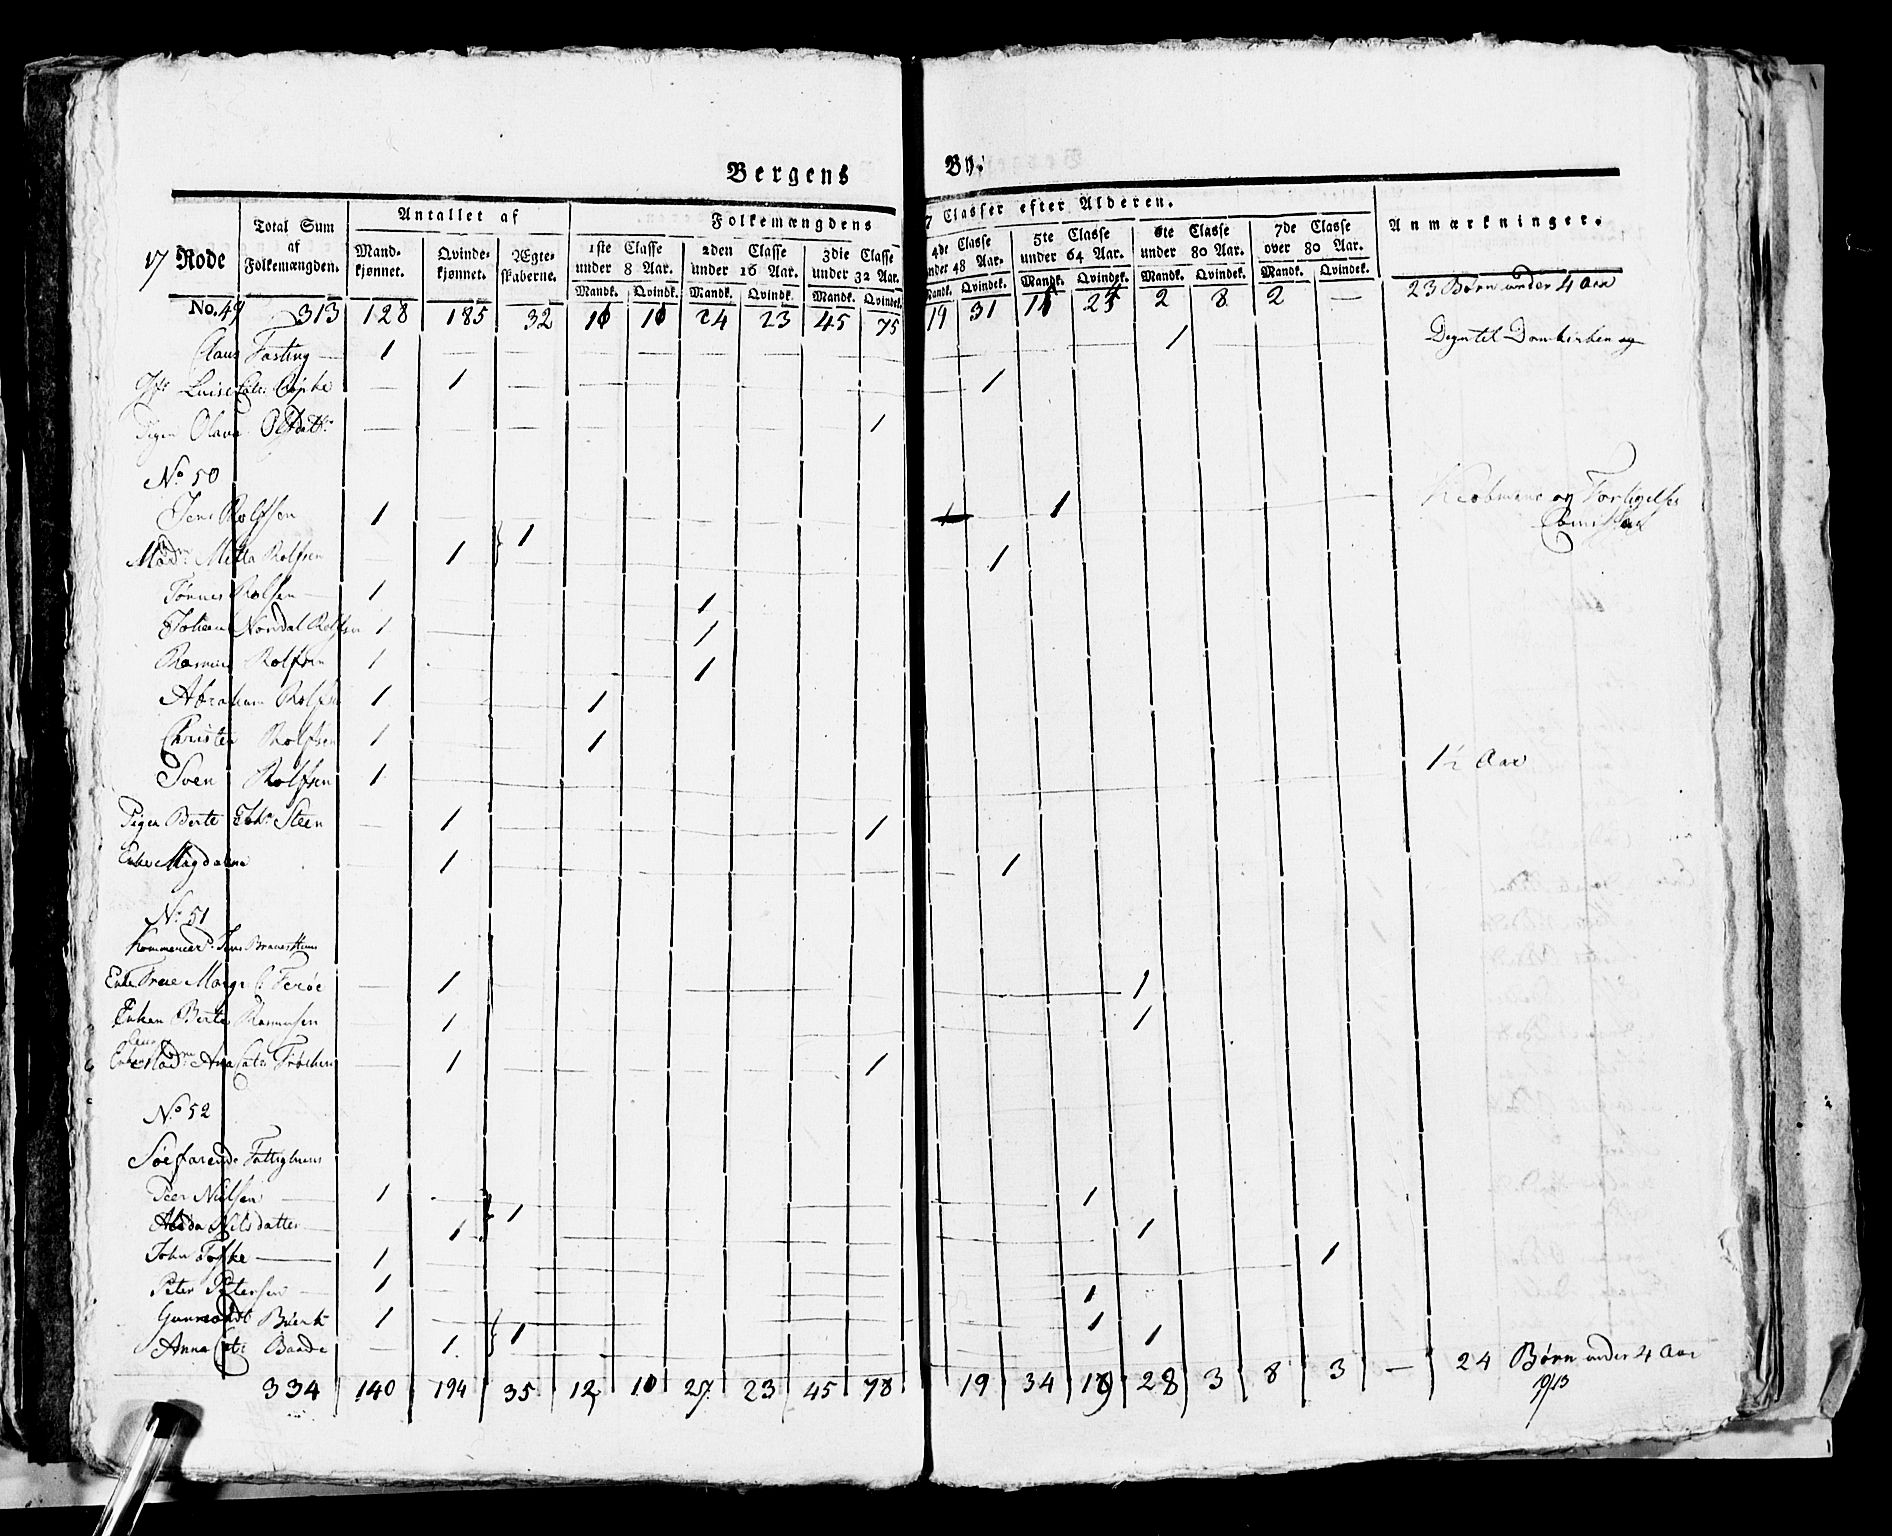 Bergens By.
17 Rode
Total Sum af Folkemængden.
Antallet af
Mandkjønnet. Qvindekjønnet. Ægteskaberne.
Folkemængdens 7 Classer efter Alderen.
1ste Classe under 8 Aar. 2den Classe under 16 Aar. 3die Classe under 32 Aar. 4de Classe under 48 Aar. 5te Classe under 64 Aar. 6te Classe under 80 Aar. 7de Classe over 80 Aar.
Mandk. Qvindk. Mandk. Qvindk. Mandk. Qvindk. Mandk. Qvindk. Mandk. Qvindk. Mandk. Qvindk. Mandk. Qvindk.
Anmærkninger.
No. 49 313 128 185 32 10 10 24 23 45 75 19 31 2 8 2 — 23 Børn under 4 Aar
Claus Fasting 1 — — — — — — — — 1 Degn til Domkirken og
Jfr Luise Cat: — 1 — — 1
Pigen Olava — — — — — — — — 1
No 50
Jens Rolfsen 1 1 1 og
Madm Metta Rolfsen 1 1
Tønnes Rolfsen 1 1
Johan Nordal Rolfsen 1 1
Rasmus Rolfsen 1 1
Abraham Rolfsen 1 1
Christen Rolfsen 1 1
Sven Rolfsen 1 1½ Aar
Pigen Berte Steen 1 1
Enke Magdalena 1 1
No 51
Enke Frue Margr C. Ferøe 1 1
Enken Berte Rasmusen 1 1
Madm Ana Cat: 1 1
No 52
Søefarende Fattighuus
Peer Nielsen 1 1 1
Nilsdatter 1 1
John 1 1
Peter Petersen 1 1
1 1 1
Anna Cat: Baade 1 1
334 140 194 35 12 10 27 23 45 78 19 34 19 28 3 8 3 — 24 Børn under 4 Aar